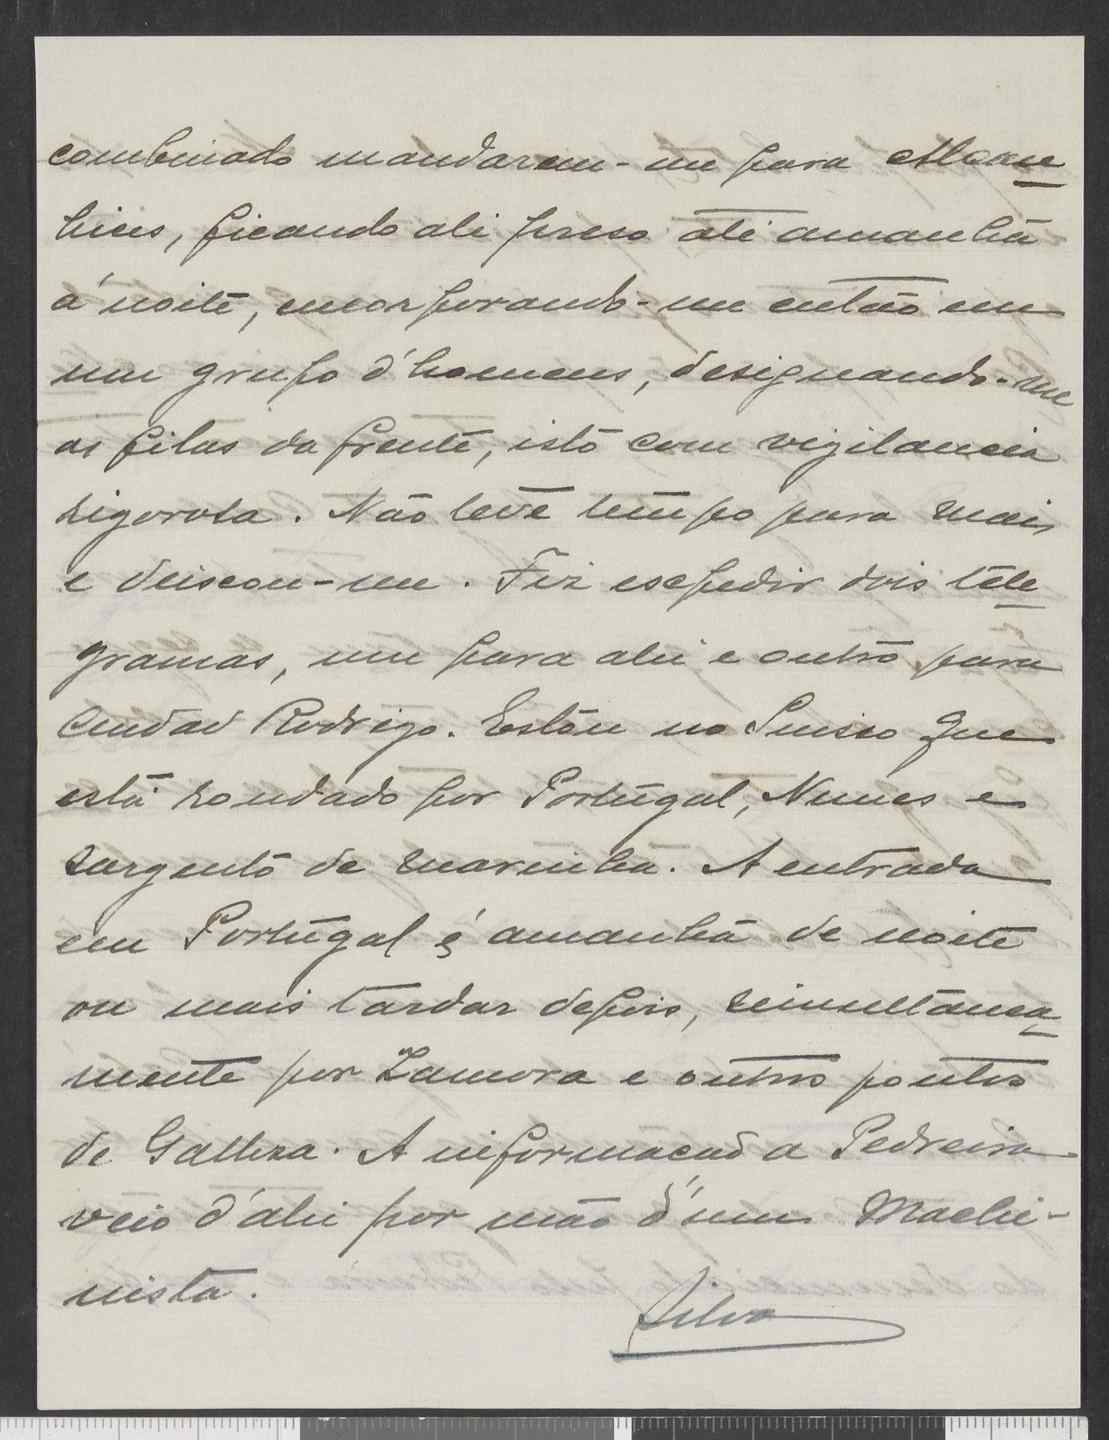 combinado mandaram-me para Alcan
hices, ficando ali preso até amanhã
á noite, encorporando-me então em
um grupo d'homens, designando-me
as filas da frente, isto com vigilancia
rigorosa. Não teve tempo para mais
e deixou-me. Fiz expedir dois tele
gramas, um para ahi e outro para
Ciudad Rodrigo. Estou no Suisso que
está rondado por Portugal, Nunes e
sargento de marinha. A entrada
em Portugal é amanhã de noite
ou mais tardar depois, seimultanea
mente por Zamora e outros pontos
de Galliza. A informacão a Pedreira
veio d'ahi por mão d'um Machi-
nista.
Silva